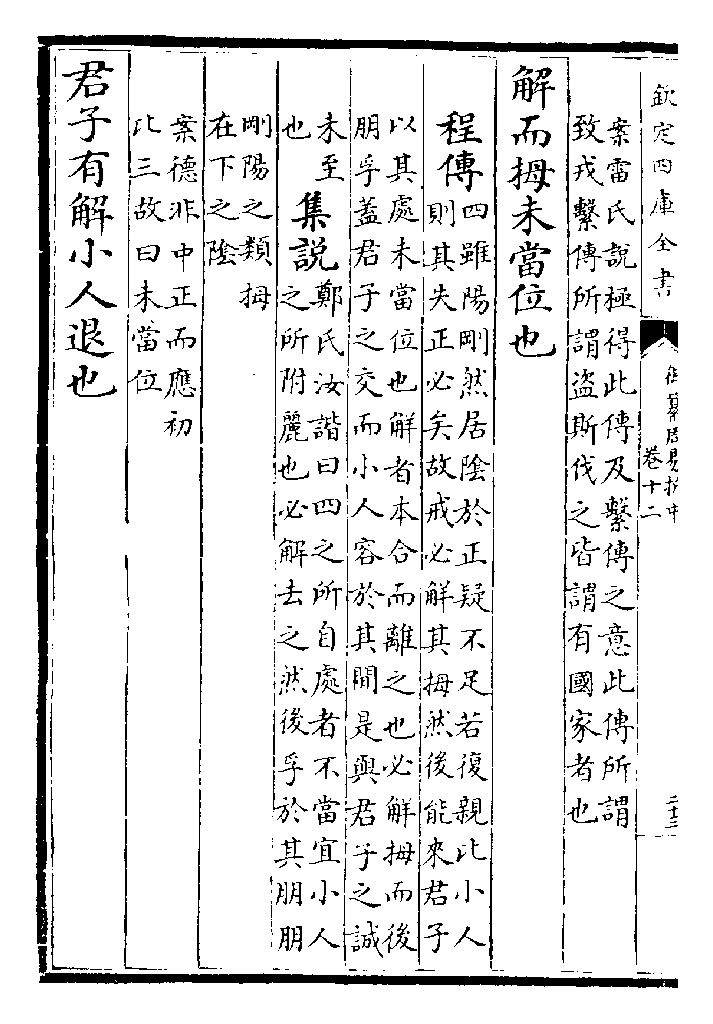 欽定四庫全書
御纂周易折中
卷十二
二十三
案雷氏說極得此傳及繫傳之意此傳所謂
致戎繫傳所謂盜斯伐之皆謂有國家者也
解而拇未當位也
程傳四雖陽剛然居陰於正疑不足若復親比小人
則其失正必矣故戒必解其拇然後能來君子
以其處未當位也解者本合而離之也必解拇而後
朋孚蓋君子之交而小人容於其間是與君子之誠
未至
也
集說鄭氏汝諧曰四之所自處者不當宜小人
之所附麗也必解去之然後孚於其朋朋
剛陽之類拇
在下之陰
案德非中正而應初
比三故曰未當位
君子有解小人退也